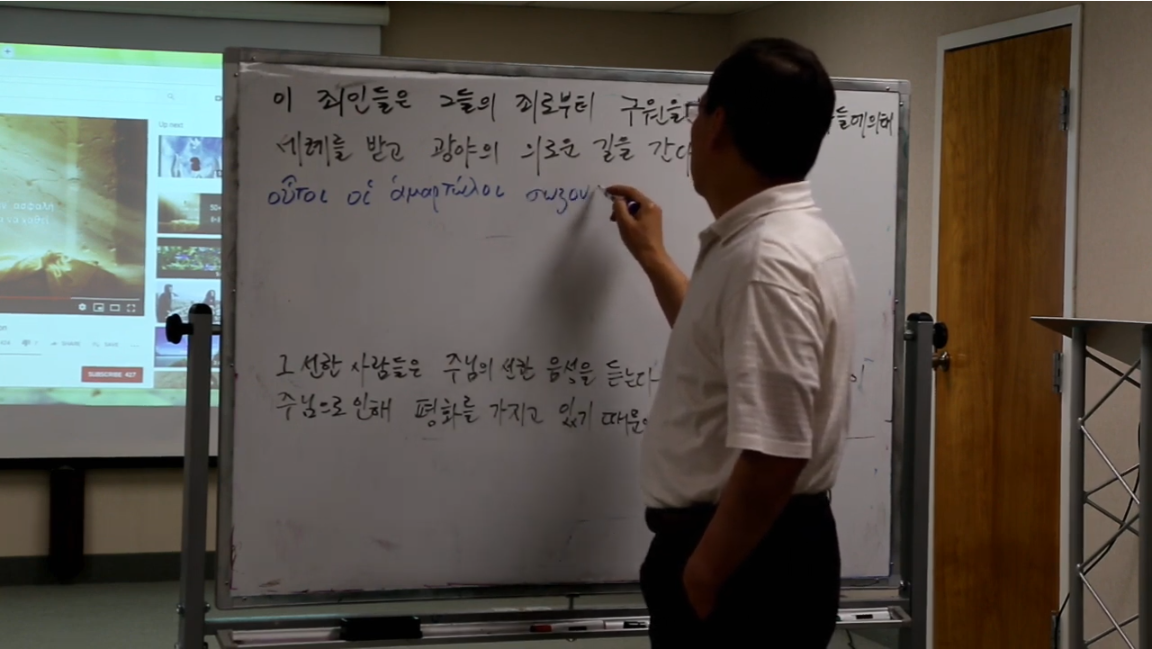 Up next
SHARE
SAVE
SUBSCRIBE 427
이 죄인들은 그들의 죄로부터 구원을
들에의해
세례를 받고 광야의 의로운 길을 간다
οὗτοι οἱ ἁμαρτώλοι σωζου
그 선한 사람들은 주님의 선한 음성을 듣는다
주님으로인해 평화를 가지고 있기 때문